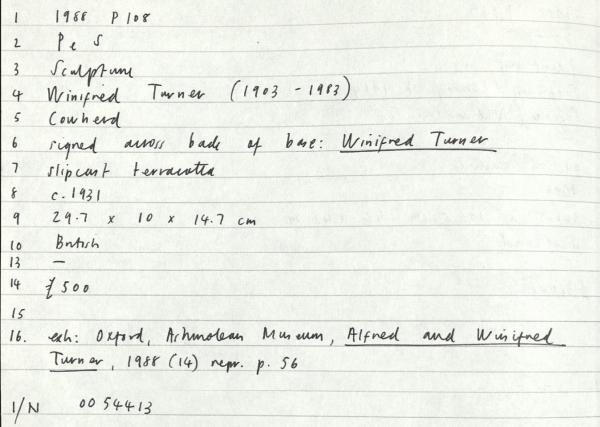 1 1988 P108
2 P e S
3 Sculpture
4 Winifred Turner (1903 - 1983)
5 Cowherd
6 signed across back of base: Winifred Turner
7 slipcast terracotta
8 c. 1931
9 29.7 x 10 x 14.7 cm
10 British
13 —
14 £500
15
16. exh: Oxford, Ashmolean Museum, Alfred and Winifred
Turner, 1988 (14) repr. p. 56
I/N 0054413